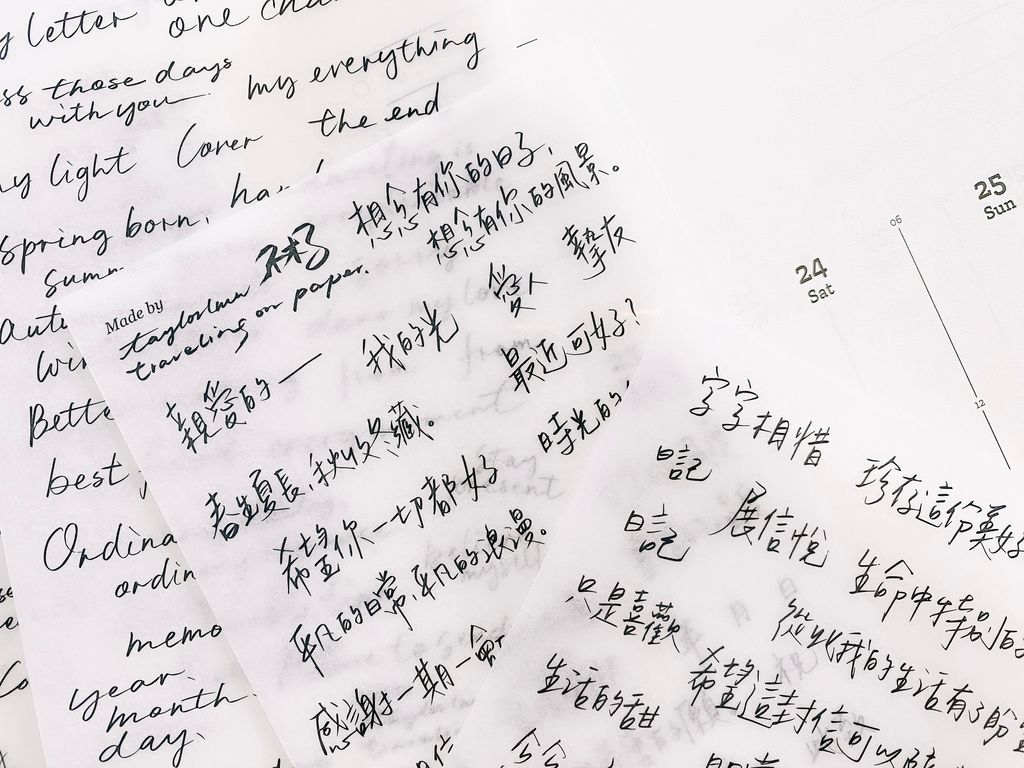 letter
one
those days
with you
my everything
light
Lover
the end
spring born,
best
memo
year.
month
day.
想念有你的日子，
想念有你的風景。
Made by
粥
taylorlmu
traveling on paper.
親愛的一
我的光
愛人
摯友
春生夏長，秋收冬藏。
最近可好？
希望你一切都好
時光的
平凡的日常，平凡的浪漫。
感謝一期一會
字字相惜
日記
珍存這份美好
日記
展信悅
生命中特別的
只是喜歡
從此我的生活有了盼
生活的甜
希望這封信可以
25
Sun
24
Sat
06
12